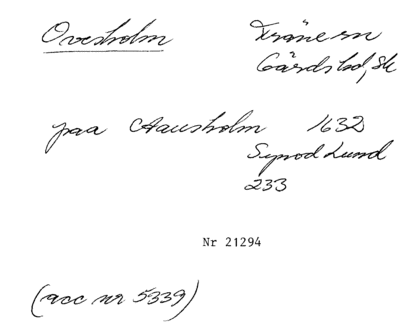 Ovesholm
Träne sn
Gärds hd, Sk
paa Aausholm 1632
Synod Lund
233
Nr 21294
(acc nr 5339)